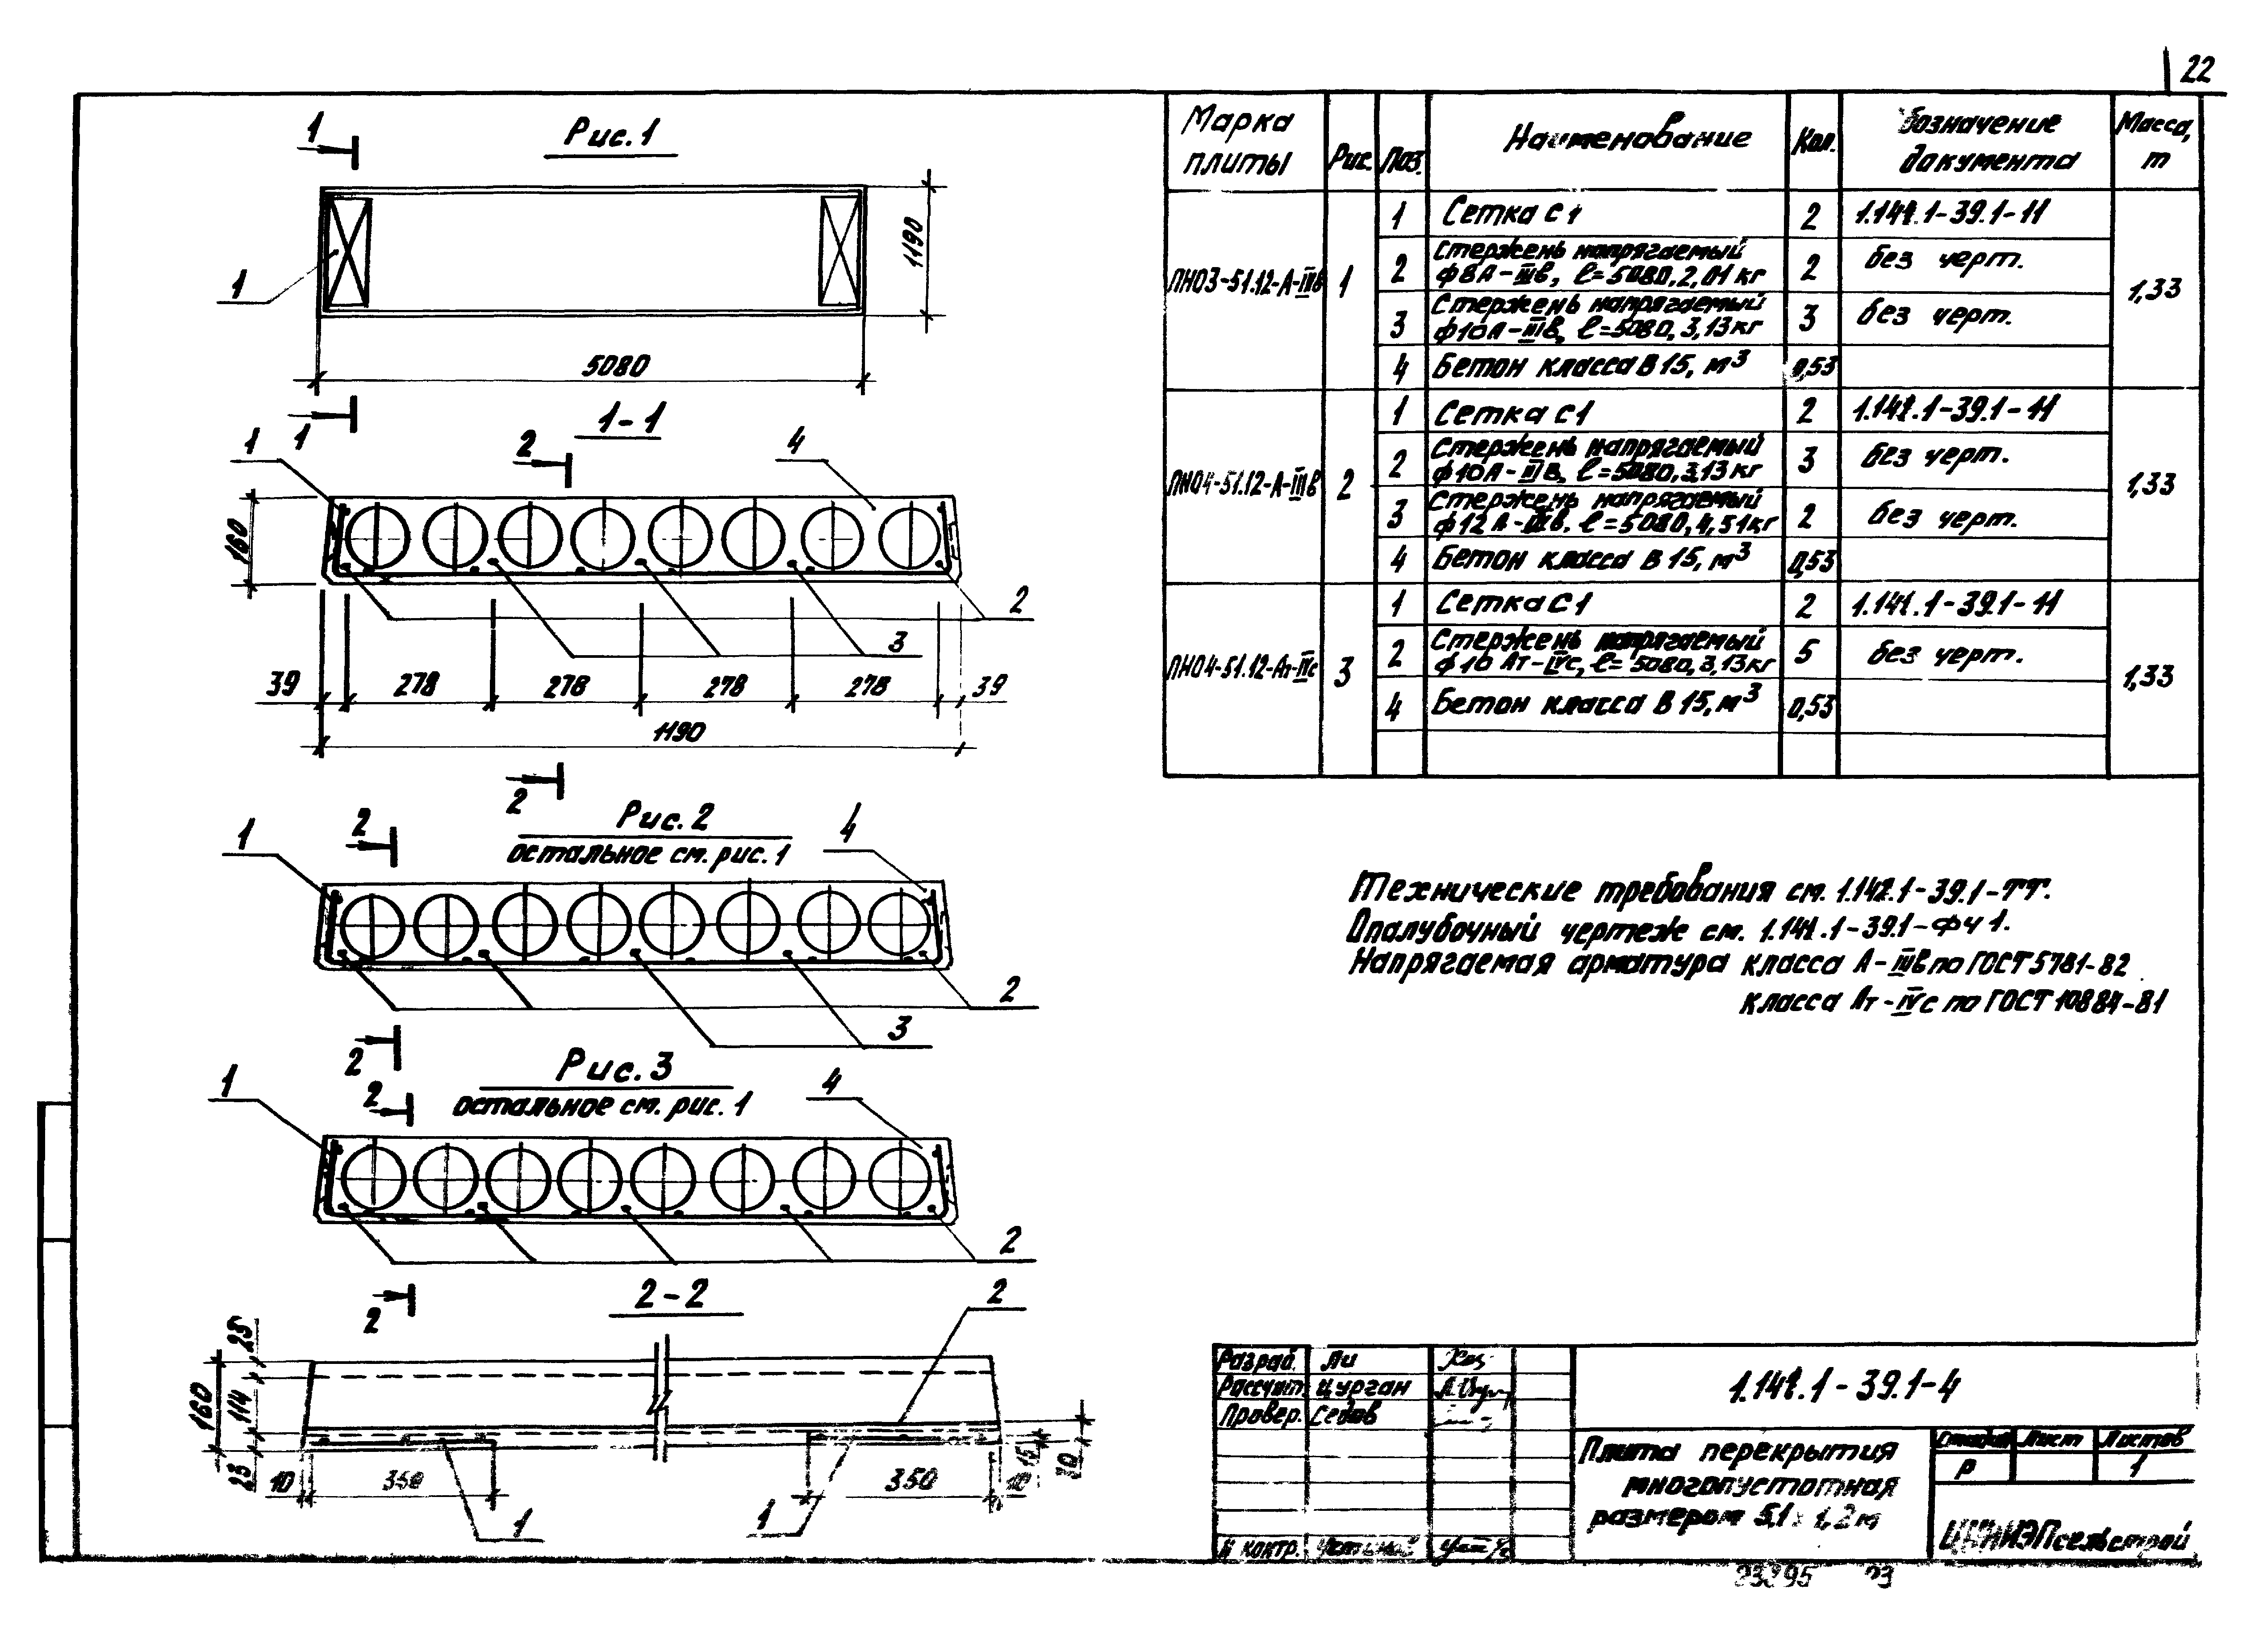 22
Рис. 1
1
1190
1
5080
1
1-1
1
2
4
160
2
3
39
278
278
278
278
39
1190
2
Рис. 2
остальное см. рис. 1
1
2
4
2
3
2
Рис. 3
остальное см. рис. 1
1
2
4
2
2
2-2
2
160
23
114
23
10
350
350
10
15
20
1
1
Марка плиты
Рис.
Поз.
Наименование
Кол.
Обозначение документа
Масса, т
ПНО3-51.12-А-IIIв
1
1,33
1 Сетка С1 2 1.141.1-39.1-11
2 Стержень напрягаемый
ф8А-IIIв, ℓ=5080, 2,01 кг 2 без черт.
3 Стержень напрягаемый
ф10А-IIIв, ℓ=5080, 3,13 кг 3 без черт.
4 Бетон класса В15, м³ 0,53
ПНО4-51.12-А-IIIв
2
1,33
1 Сетка С1 2 1.141.1-39.1-11
2 Стержень напрягаемый
ф10А-IIIв, ℓ=5080, 3,13 кг 3 без черт.
3 Стержень напрягаемый
ф12А-IIIв, ℓ=5080, 4,51 кг 2 без черт.
4 Бетон класса В15, м³ 0,53
ПНО4-51.12-Ат-IVс
3
1,33
1 Сетка С1 2 1.141.1-39.1-11
2 Стержень напрягаемый
ф10 Ат-IVс, ℓ=5080, 3,13 кг 5 без черт.
4 Бетон класса В15, м³ 0,53
Технические требования см. 1.141.1-39.1-ТТ.
Опалубочный чертеж см. 1.141.1-39.1-ФЧ 1.
Напрягаемая арматура класса А-IIIв по ГОСТ 5781-82
класса Ат-IVс по ГОСТ 10884-81
Разраб. Ли
Рассчит. Цурган
Провер. Седов
Н контр.
1.141.1-39.1-4
Плита перекрытия
многопустотная
размером 5,1х1,2м
Стадия Лист Листов
Р 1
ЦНИИЭПсельстрой
23395 23